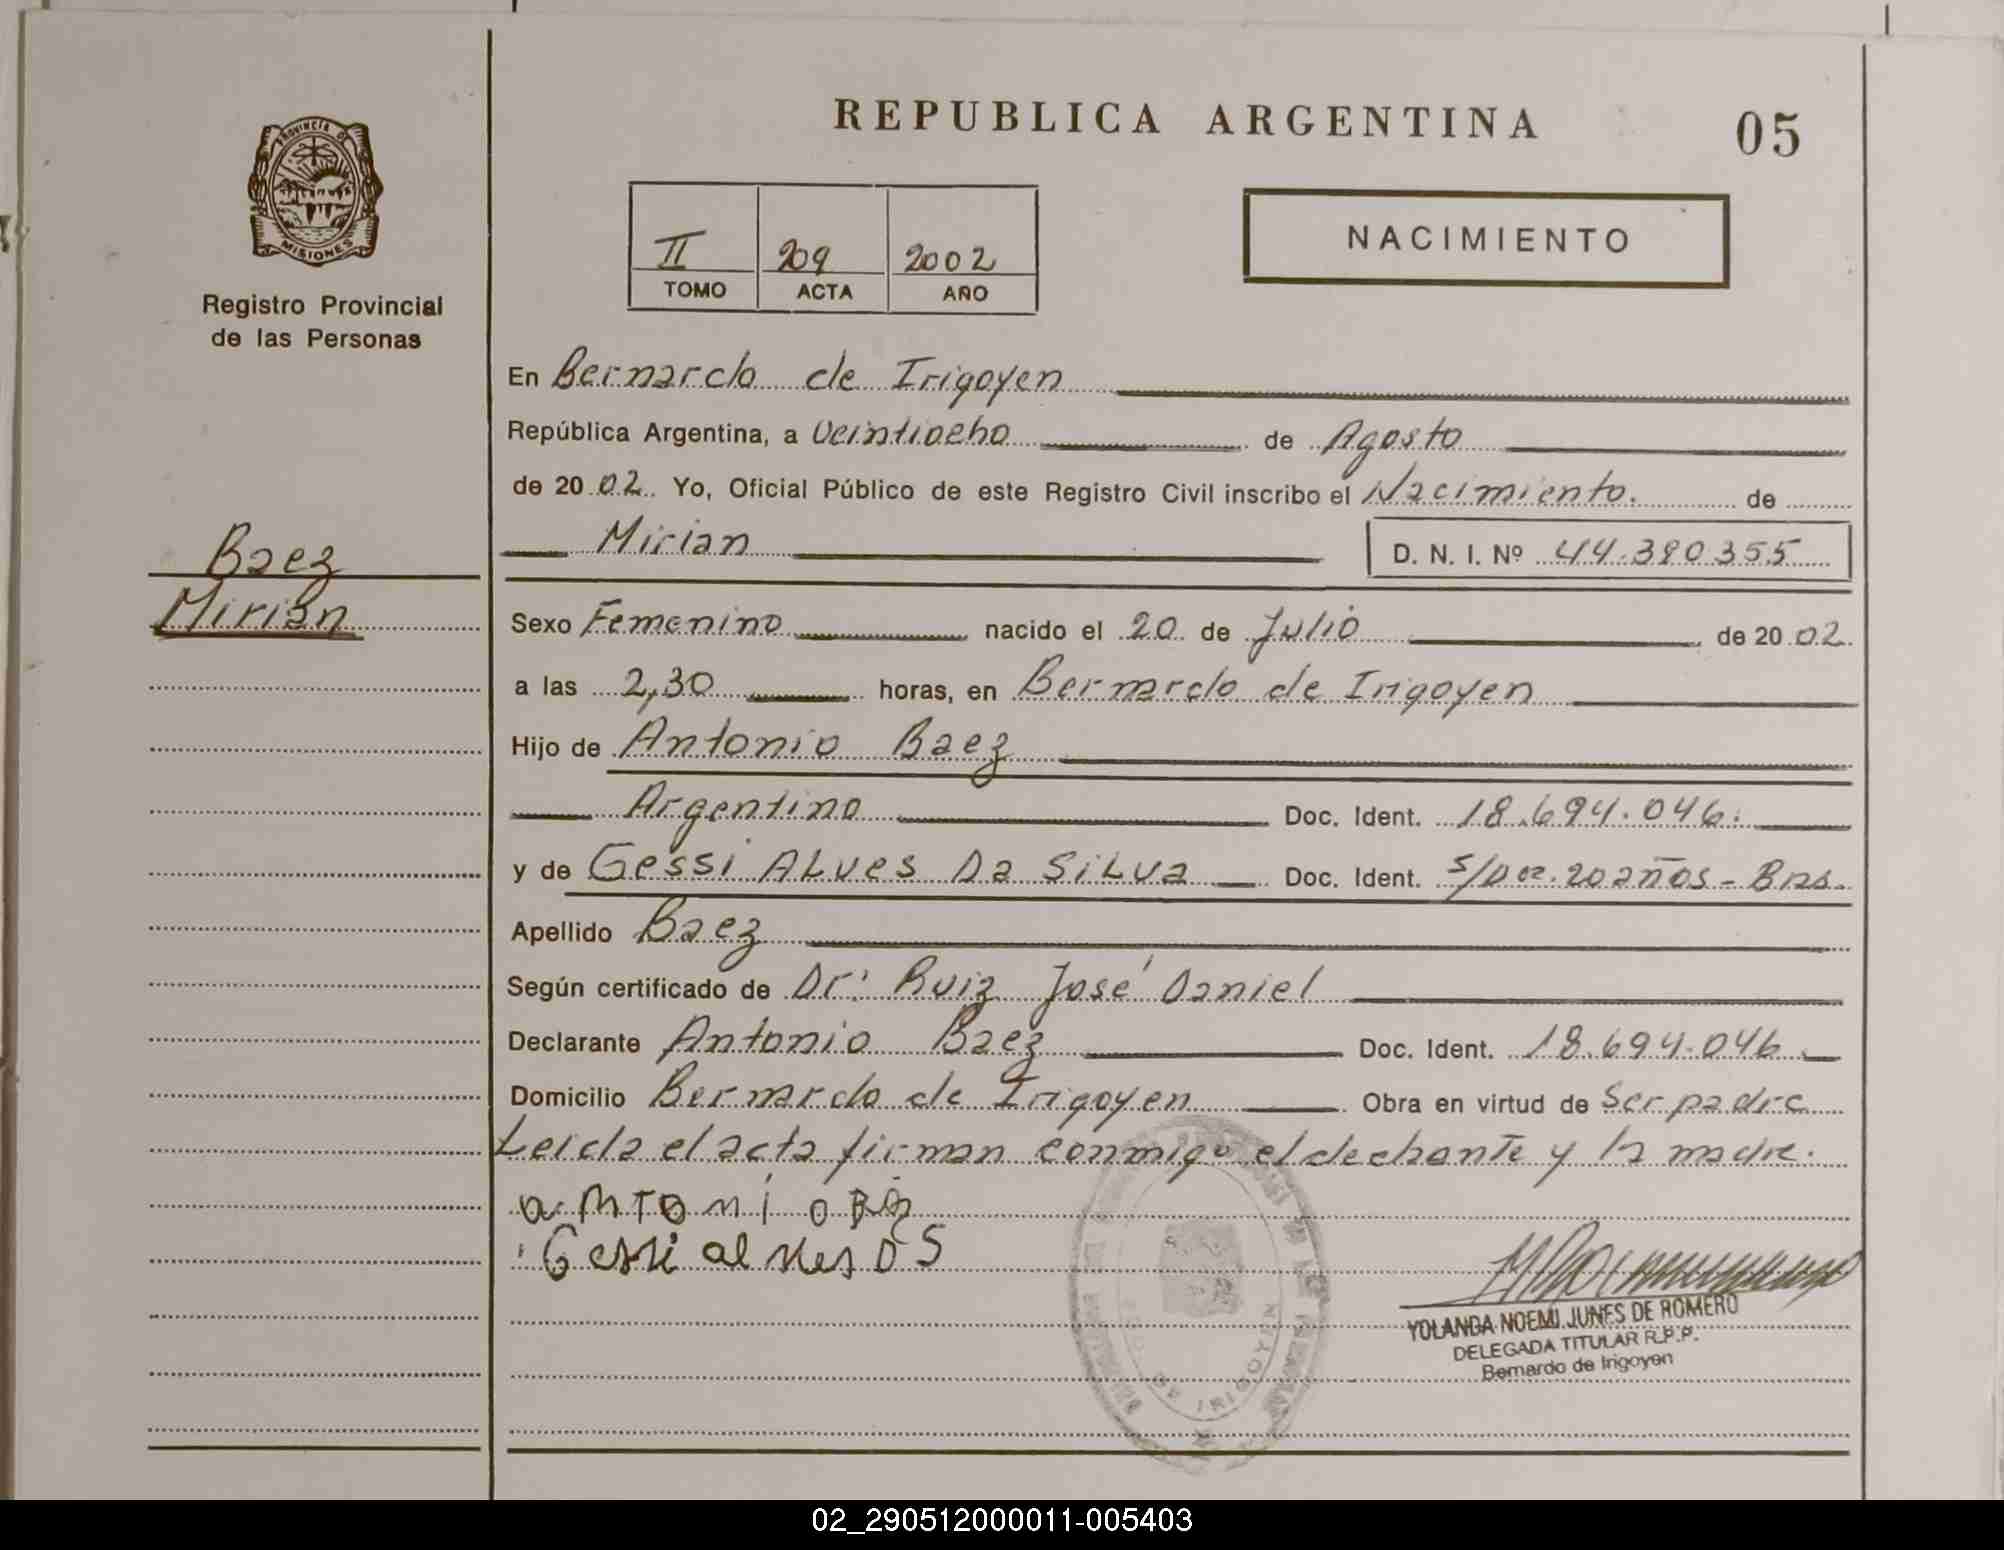 REPUBLICA ARGENTINA
05
PROVINCIA DE
MISIONES
Registro Provincial
de las Personas
II 209 2002
TOMO ACTA AÑO
NACIMIENTO
En Bernardo de Irigoyen
República Argentina, a Veintiocho de Agosto
de 20 02 Yo, Oficial Público de este Registro Civil inscribo el Nacimiento. de
Mirian D. N. I. Nº 44.390355
Baez
Mirian
Sexo Femenino nacido el 20 de Julio de 20 02
a las 2,30 horas, en Bernardo de Irigoyen
Hijo de Antonio Baez
Argentino Doc. Ident. 18.694.046.
y de Gessi ALves Da SiLva Doc. Ident. s/Doc. 20 años - Bras.
Apellido Baez
Según certificado de Dr. Ruiz José Daniel
Declarante Antonio Baez Doc. Ident. 18.694.046
Domicilio Bernardo de Irigoyen Obra en virtud de Ser padre
Leida el acta firman conmigo el declarante y la madre.
antonio
Gessi alves DS
YOLANDA NOEMI JUNES DE ROMERO
DELEGADA TITULAR R.P.P.
Bernardo de Irigoyen
DE IRIGOYEN
02_290512000011-005403